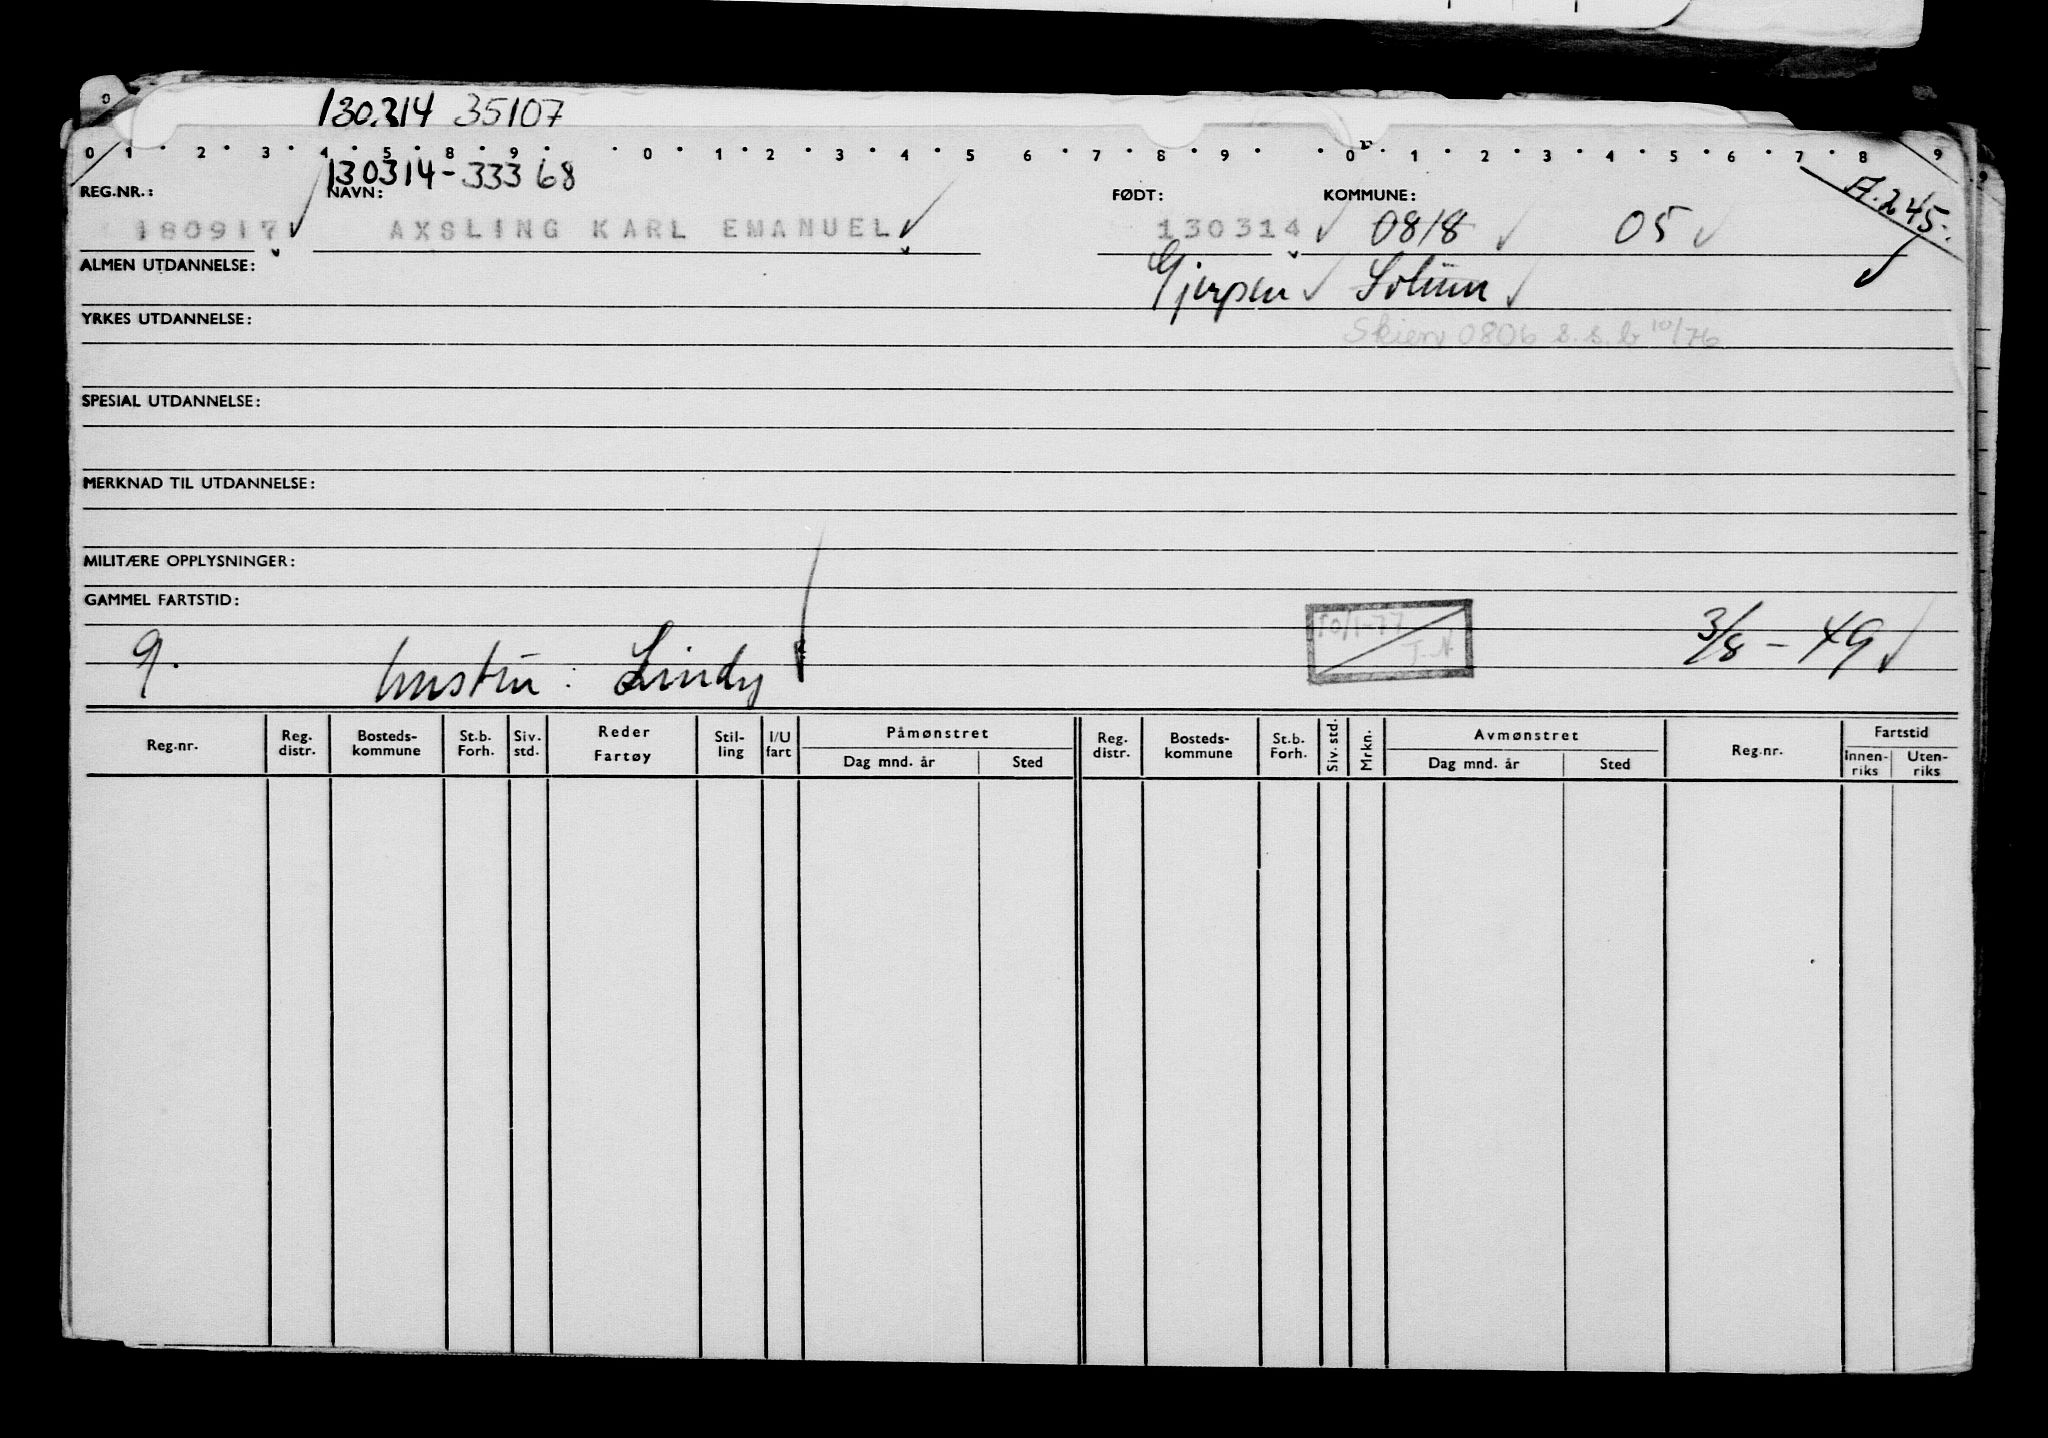 130314 35107
0 1 2 3 4 5 8 9 0 1 2 3 4 5 6 7 8 9 0 1 2 3 4 5 6 7 8 9
130314-33368
REG.NR.: NAVN: FØDT: KOMMUNE: A.245.
180917 AXSLING KARL EMANUEL 130314 0818 05
ALMEN UTDANNELSE: Gjerpen Solum
YRKES UTDANNELSE: Skien 0806 s.s.b 10/76
SPESIAL UTDANNELSE:
MERKNAD TIL UTDANNELSE:
MILITÆRE OPPLYSNINGER:
GAMMEL FARTSTID:
10/1-77
g. hustru: Lindy 3/8-49
Reg.nr. Reg. distr. Bosteds-kommune St.b. Forh. Siv. std. Reder Fartøy Stil-ling I/U fart Påmønstret Dag mnd. år Sted Reg. distr. Bosteds-kommune St.b. Forh. Siv. std. Mrkn. Avmønstret Dag mnd. år Sted Reg.nr. Fartstid Innen-riks Uten-riks